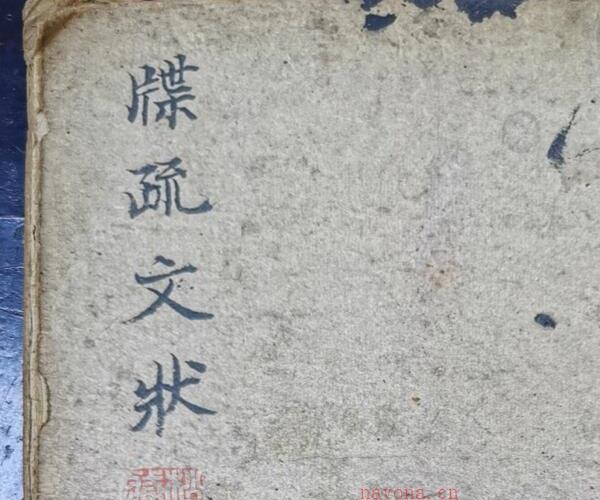 牒疏文状
nayona.cn